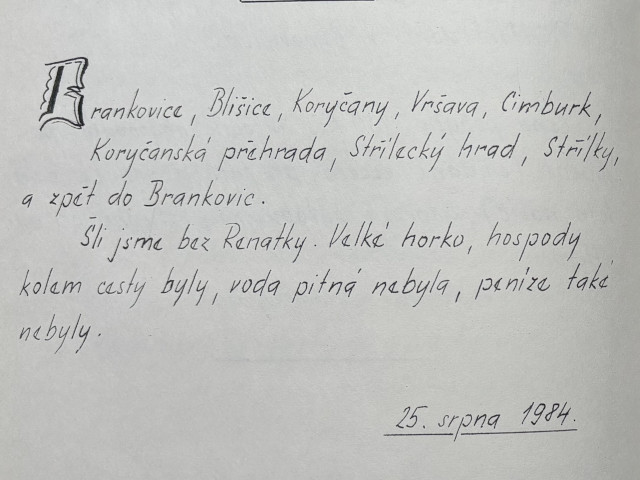 Brankovice, Blišice, Koryčany, Vršava, Cimburk,
Koryčanská přehrada, Střílecký hrad, Střílky,
a zpět do Brankovic.
Šli jsme bez Renatky. Velké horko, hospody
kolem cesty byly, voda pitná nebyla, peníze také
nebyly.
25. srpna 1984.